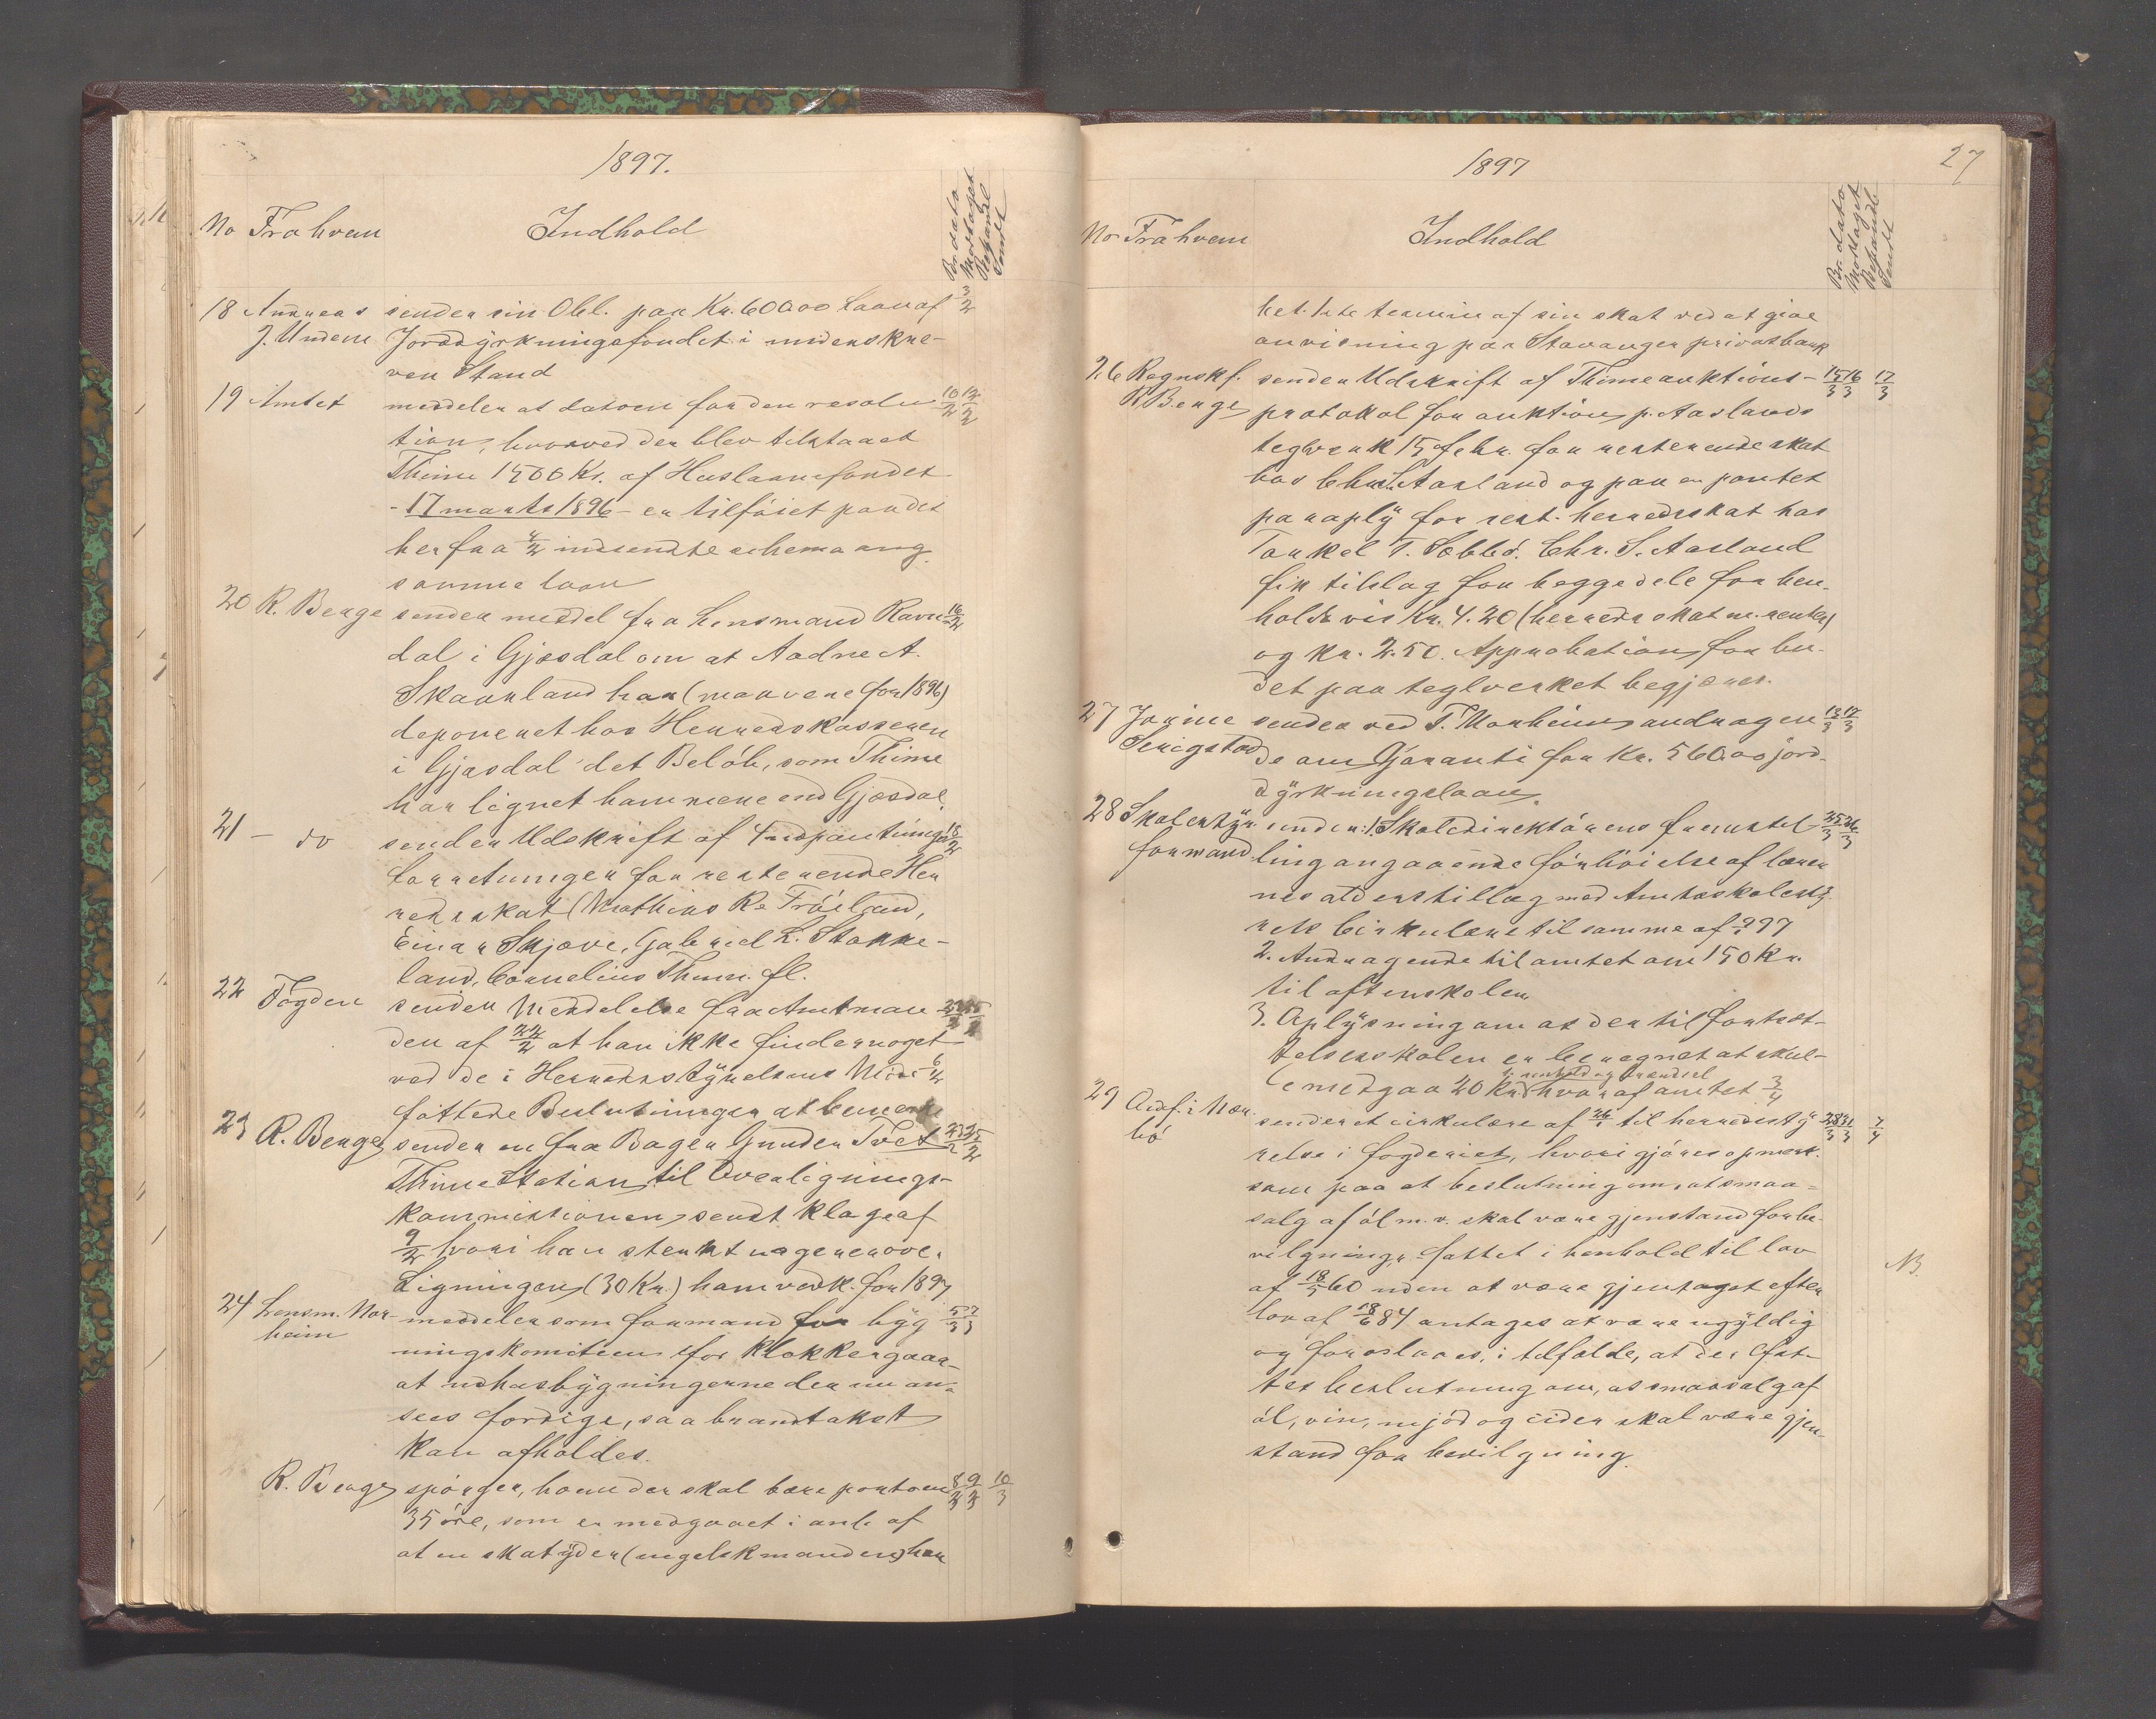 1897.
No Fra hvem Indhold Br. dato Modtaget Besvaret Sendt
18 Andreas sender sin Obl. paa Kr. 600.00 Laan af 3/2
J. Undem Jorddyrkningsfondet i underskre-
ven Stand
19 Amtet meddeler at datoen for den resolu 10/2 12/2
tion, hvorved der blev tilstaaet
Thime 1500 Kr. af Huslaanefondet
- 17 marts 1896 - er tilføiet paa det
her fra 4/2 indsendte schema ang.
samme laan
20 R. Berge sender meddel fra Lensmand Ravn 16/2
dal i Gjesdal om at Aadne A.
Skaarland har (maavære for 1896)
deponeret hos Herredskasseren
i Gjesdal det Beløb, som Thime
har lignet ham mere end Gjesdal.
21 - do sender Udskrift af 4 udpantnings 18/2
forretninger for resterende Her
redsskat (Mathias R. Frøiland,
Einar Skjæve, Gabriel L. Stokke-
land, Cornelius Thu m. fl.
22 Fogden sender Meddelelse fra Amtman 23/2 25/2
den af 22/2 at han ikke finder noget
ved de i Herredsstyrelsens Møde 6/2
fattede Beslutninger at bemerke
23 R. Berge sender en fra Bager Gunder Tvet 23/2 25/2
Thime Station til Overlignings-
kommissionen sendt klage af
9/2 hvori han sterkt nageer over
Ligningen (30 Kr.) ham vedk. for 1897
24 Lensm. Nor- meddeler som formand for byg 5/3 7/3
heim
ningskomiteen for Klokkergaar-
at udhusbygningerne der nu an-
sees fordige, saa brandtakst
kan afholdes.
R. Berge spørger, hvem der skal bære portoen 8/3 9/3 10/3
35 øre, som er medgaaet i anl. af
at en skatyder (engelskmanden) har
1897 27
No Fra hvem Indhold Br. dato Modtaget Besvaret Sendt
bet. 1ste termin af sin skat ved at give
anvisning paa Stavanger privatbank
26 Regnskf. sender Udskrift af Thime auktions- 15/3 16/3 17/3
R. Berge protokol for auktion p. Aaslands
teglverk 15 febr. for resterende skat
hos Chr. S. Aasland og paa en pantet
paraply for rest. herredsskat hos
Torkel T. Sæbbø. Chr. S. Aasland
fik tilslag for begge dele for hen-
holdsvis Kr. 4.20 (herredsskat m. renter)
og Kr. 2.50. Approbation for bu-
det paa teglverket begjæres.
27 Jorine sender ved T. Norheim andragen 12/3 17/3
Serigstad de om Garanti for Kr. 560.00 jord-
dyrkningslaan.
28 Skolestyr. sender: 1. Skoledirektørens fremstil 25/3 26/3
formand ling angaaende forhøielse af lærer
nes alderstillæg med Amtsskolesty
rets Cirkulære til samme af 9/3 97
2. Andragende til amtet om 150 Kr.
til aftenskolen
3. Oplysning om at der til fortsæt-
telsesskolen er beregnet at skul-
le medgaa 20 Kr. hvoraf amtet 3/4
29 Avdf. i Nær- sender et cirkulære af 26/3 til herredssty 28/3 31/3 7/4
bø
relse i fogderiet, hvori gjøres opmerk.
som paa at beslutning om, at smaa-
salg af øl m. v. skal være gjenstand for be-
vilgning, fattet i henhold til lov
af 18/5 60 uden at være gjentaget efter NB.
lov af 18/6 84 antages at være ugyldig
og foreslaaes, i tilfælde, at der fat-
tes beslutning om, at smaasalg af
øl, vin, mjød og cider skal være gjen-
stand for bevilgning.